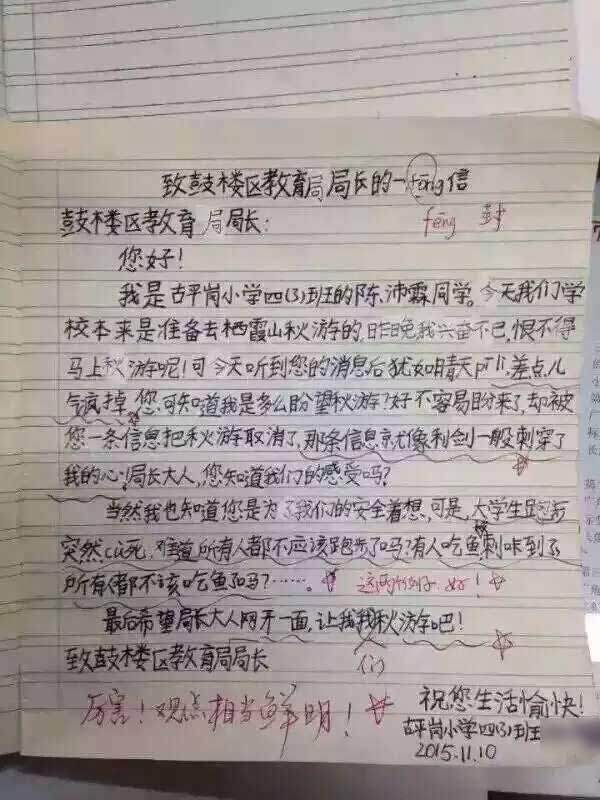 致鼓楼区教育局局长的一fēng信
fēng 封
鼓楼区教育局局长:
您好!
我是古平岗小学四(3)班的陈沛霖同学。今天我们学
校本来是准备去栖霞山秋游的,昨晚我兴奋不已,恨不得
马上秋游呢!可今天听到您的消息后犹如晴天pīlì,差点儿
气疯掉。您可知道我是多么盼望秋游?好不容易盼来了,却被
您一条信息把秋游取消了,那条信息京尤像利剑一般刺穿了
我的心!局长大人,您知道我们的感受吗?
当然我也知道您是为了我们的安全着想,可是,大学生跑步
突然cù死,难道所有人都不应该跑步了吗?有人吃鱼被刺咔到了
所有人都不该吃鱼了吗?……。
这两个例子好!
最后希望局长大人网开一面,让我我们秋游吧!
致鼓楼区教育局局长
厉害!观点相当鲜明!
祝您生活愉快!
古平岗小学四(3)班
2015.11.10